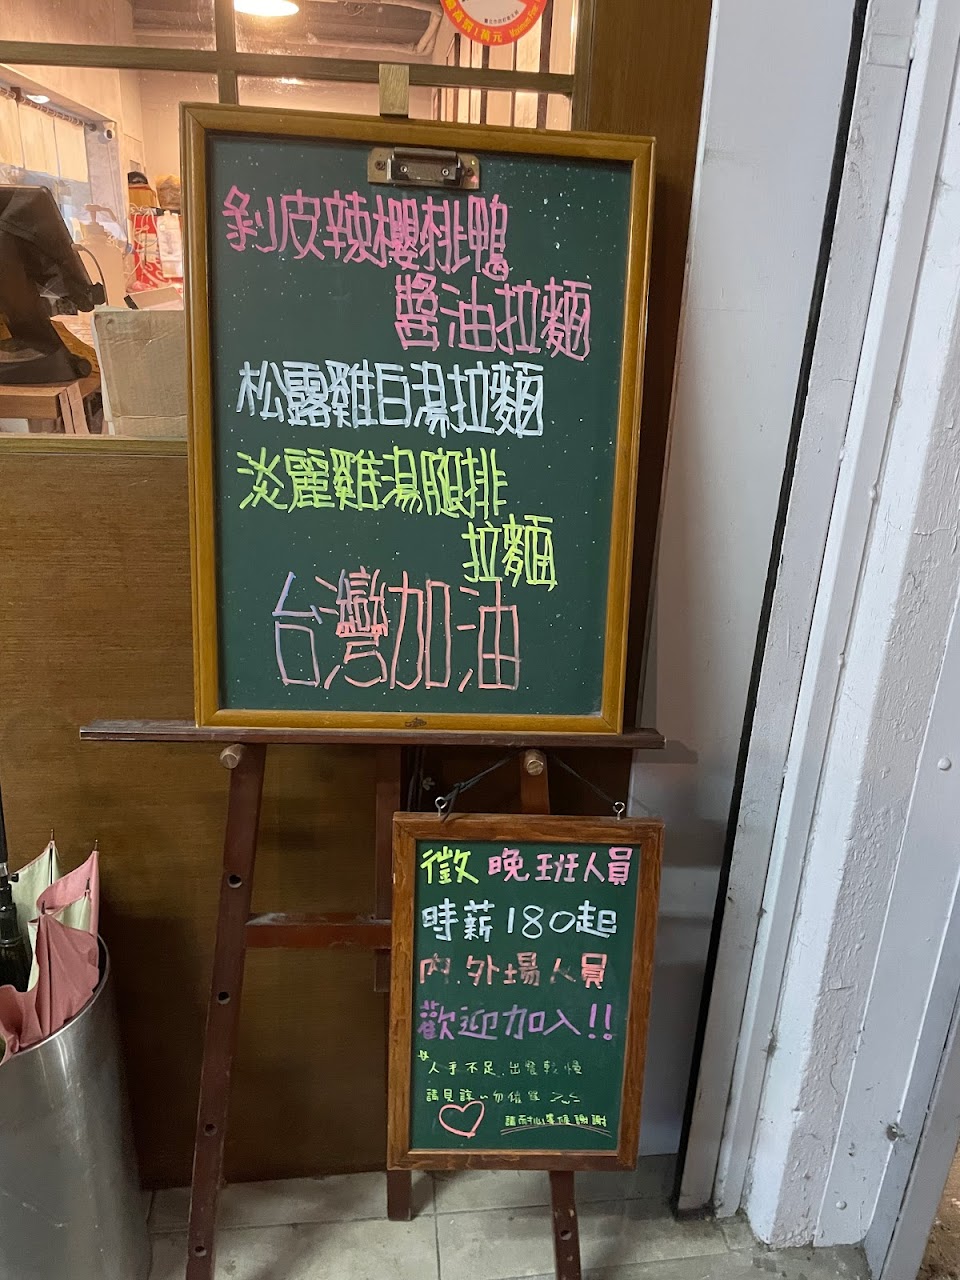 最高罰1萬元 Maximum Fine
剝皮辣櫻桃鴨
醬油拉麵
松露雞白湯拉麵
淡麗雞湯腿排
拉麵
台灣加油
徵晚班人員
時薪180起
內.外場人員
歡迎加入!!
人手不足.出餐較慢
請見諒、勿催餐
請耐心等候謝謝